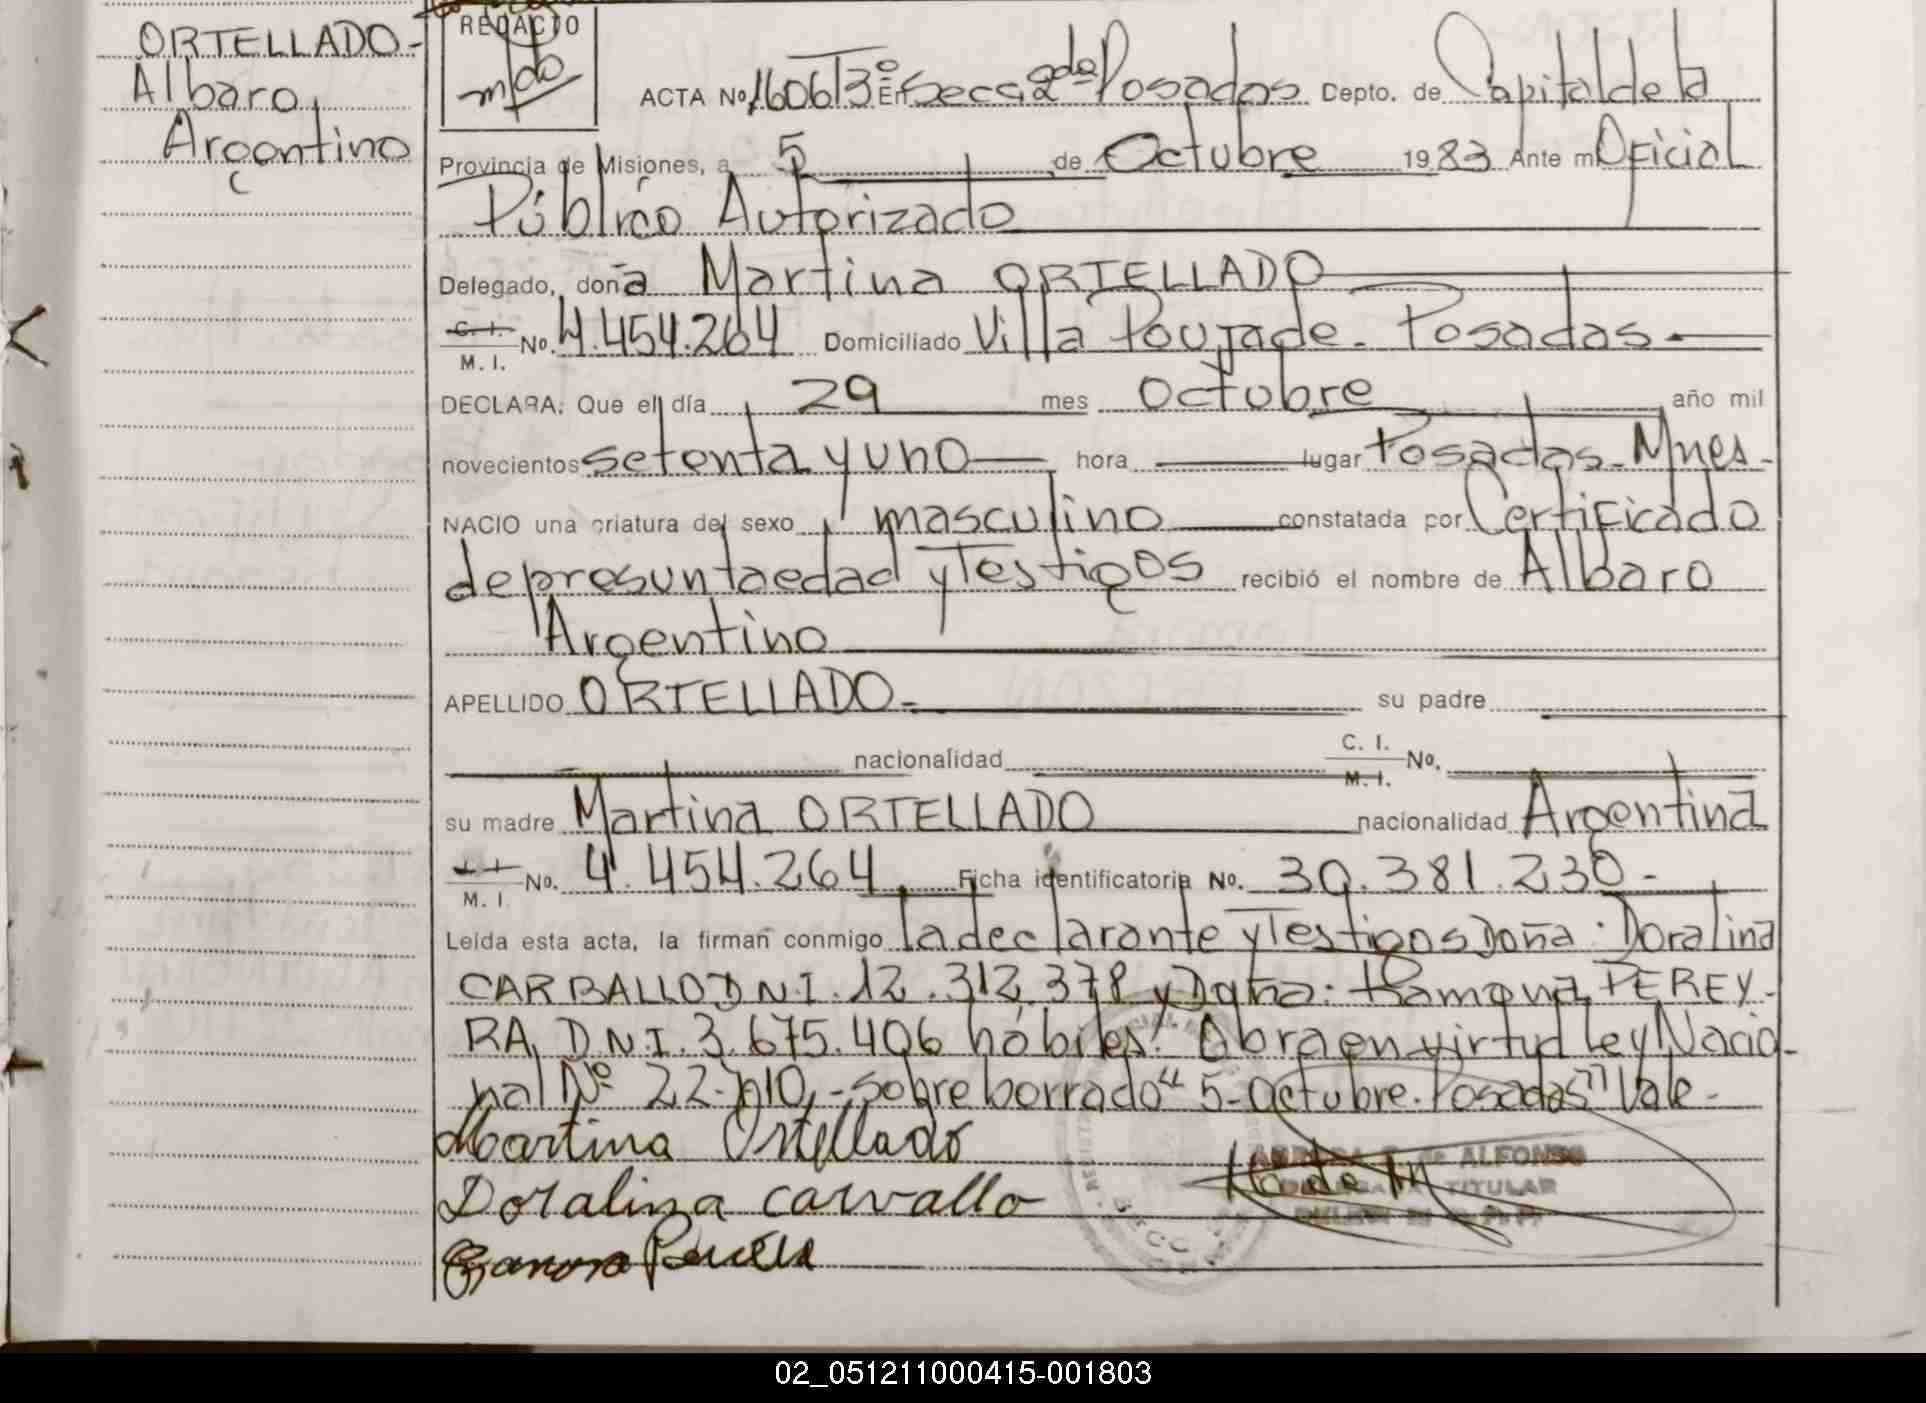 ORTELLADO-
Albaro
Argentino
REDACTO
ACTA Nº 1606 T3º En Secc. 2da Posadas Depto. de Capital de la
Provincia de Misiones, a 5 de Octubre 1983 Ante mi Oficial
Público Autorizado
Delegado, doña Martina ORTELLADO
C. I.
M. I. No. 4.454.264 Domiciliado Villa Poujade - Posadas -
DECLARA: Que el día 29 mes Octubre año mil
novecientos setenta y uno hora lugar Posadas - Mnes -
NACIO una criatura del sexo masculino constatada por Certificado
de presunta edad y Testigos recibió el nombre de Albaro
Argentino
APELLIDO ORTELLADO - su padre
nacionalidad C. I. M. I. No.
su madre Martina ORTELLADO nacionalidad Argentina
M. I. No. 4.454.264 Ficha identificatoria No. 30.381.230 -
Leída esta acta, la firman conmigo la declarante y Testigos Doña: Doralina
CARBALLO D.N.I. 12.312.378 y Doña: Ramona PEREY-
RA, D.N.I. 3.675.406 hábiles. Obra en virtud ley Nacio-
nal Nº -sobre borrado "5-Octubre. Posadas" Vale -
Martina Ortellado
Doralina Carvallo
de ALFONSO
TITULAR
Ramona
02_051211000415-001803